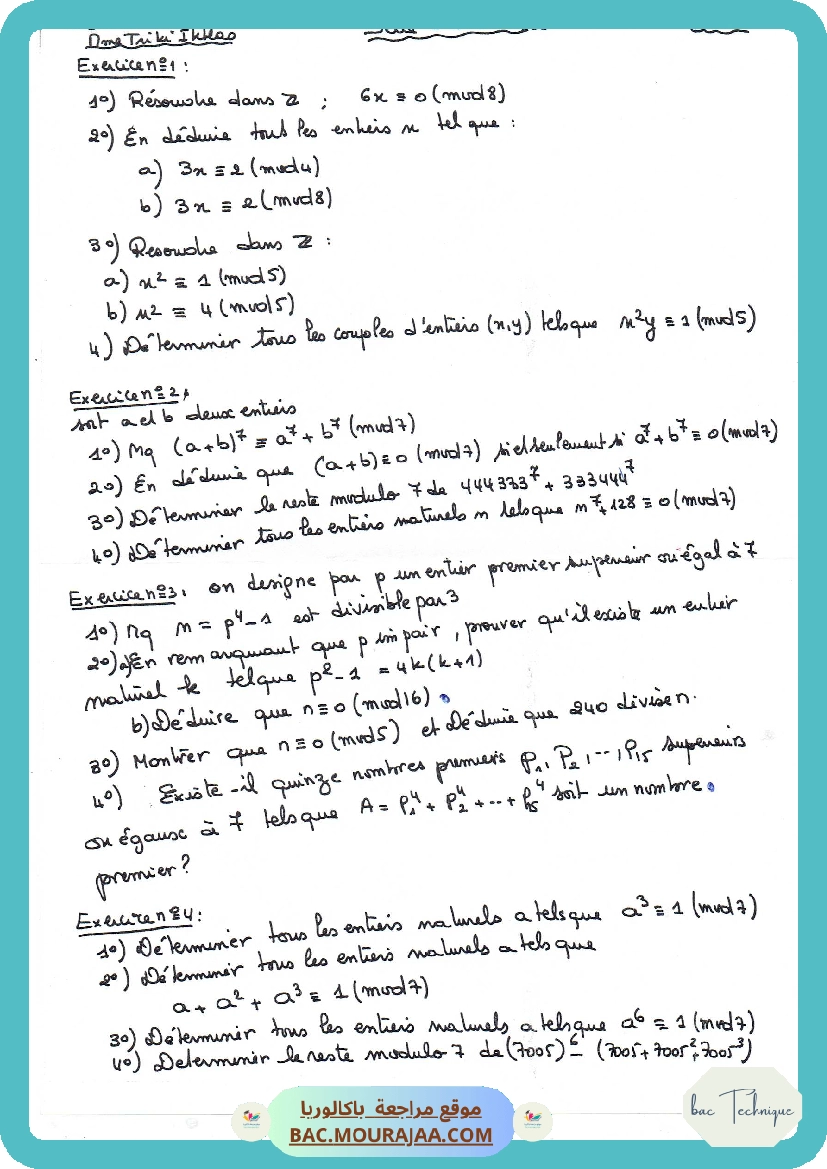 Mme Triki Ikhlas
Exercice n°1 :
1°) Résoudre dans Z ; 6x ≡ 0 (mod 8)
2°) En déduire tout les entiers x tel que :
a) 3x ≡ 2 (mod 4)
b) 3x ≡ 2 (mod 8)
3°) Resoudre dans Z :
a) x² ≡ 1 (mod 5)
b) x² ≡ 4 (mod 5)
4) Déterminer tous les couples d'entiers (x,y) tels que x²y ≡ 1 (mod 5)
Exercice n°2 :
soit a et b deux entiers
1°) Mq (a+b)⁷ ≡ a⁷ + b⁷ (mod 7)
2°) En déduire que (a+b) ≡ 0 (mod 7) si et seulement si a⁷ + b⁷ ≡ 0 (mod 7)
3°) Déterminer le reste modulo 7 de 444333⁷ + 333444⁷
4°) Déterminer tous les entiers naturels n tels que n⁷ + 128 ≡ 0 (mod 7)
Exercice n°3 : on designe par p un entier premier supérieur ou égal à 7
1°) Mq n = p⁴ - 1 est divisible par 3
2°) a) En remarquant que p impair, prouver qu'il existe un entier
naturel k tel que p² - 1 = 4k(k+1)
b) Déduire que n ≡ 0 (mod 16).
3°) Montrer que n ≡ 0 (mod 5) et Déduire que 240 divise n.
4°) Existe-il quinze nombres premiers P₁, P₂, ..., P₁₅ supérieurs
ou égaux à 7 tels que A = P₁⁴ + P₂⁴ + ... + P₁₅⁴ soit un nombre
premier ?
Exercice n°4 :
1°) Déterminer tous les entiers naturels a tels que a³ ≡ 1 (mod 7)
2°) Déterminer tous les entiers naturels a tels que
a + a² + a³ ≡ 1 (mod 7)
3°) Déterminer tous les entiers naturels a tels que a⁶ ≡ 1 (mod 7)
4°) Determiner le reste modulo 7 de (7005)⁶ - (7005 + 7005² + 7005³)
موقع مراجعة باكالوريا
BAC.MOURAJAA.COM
bac Technique